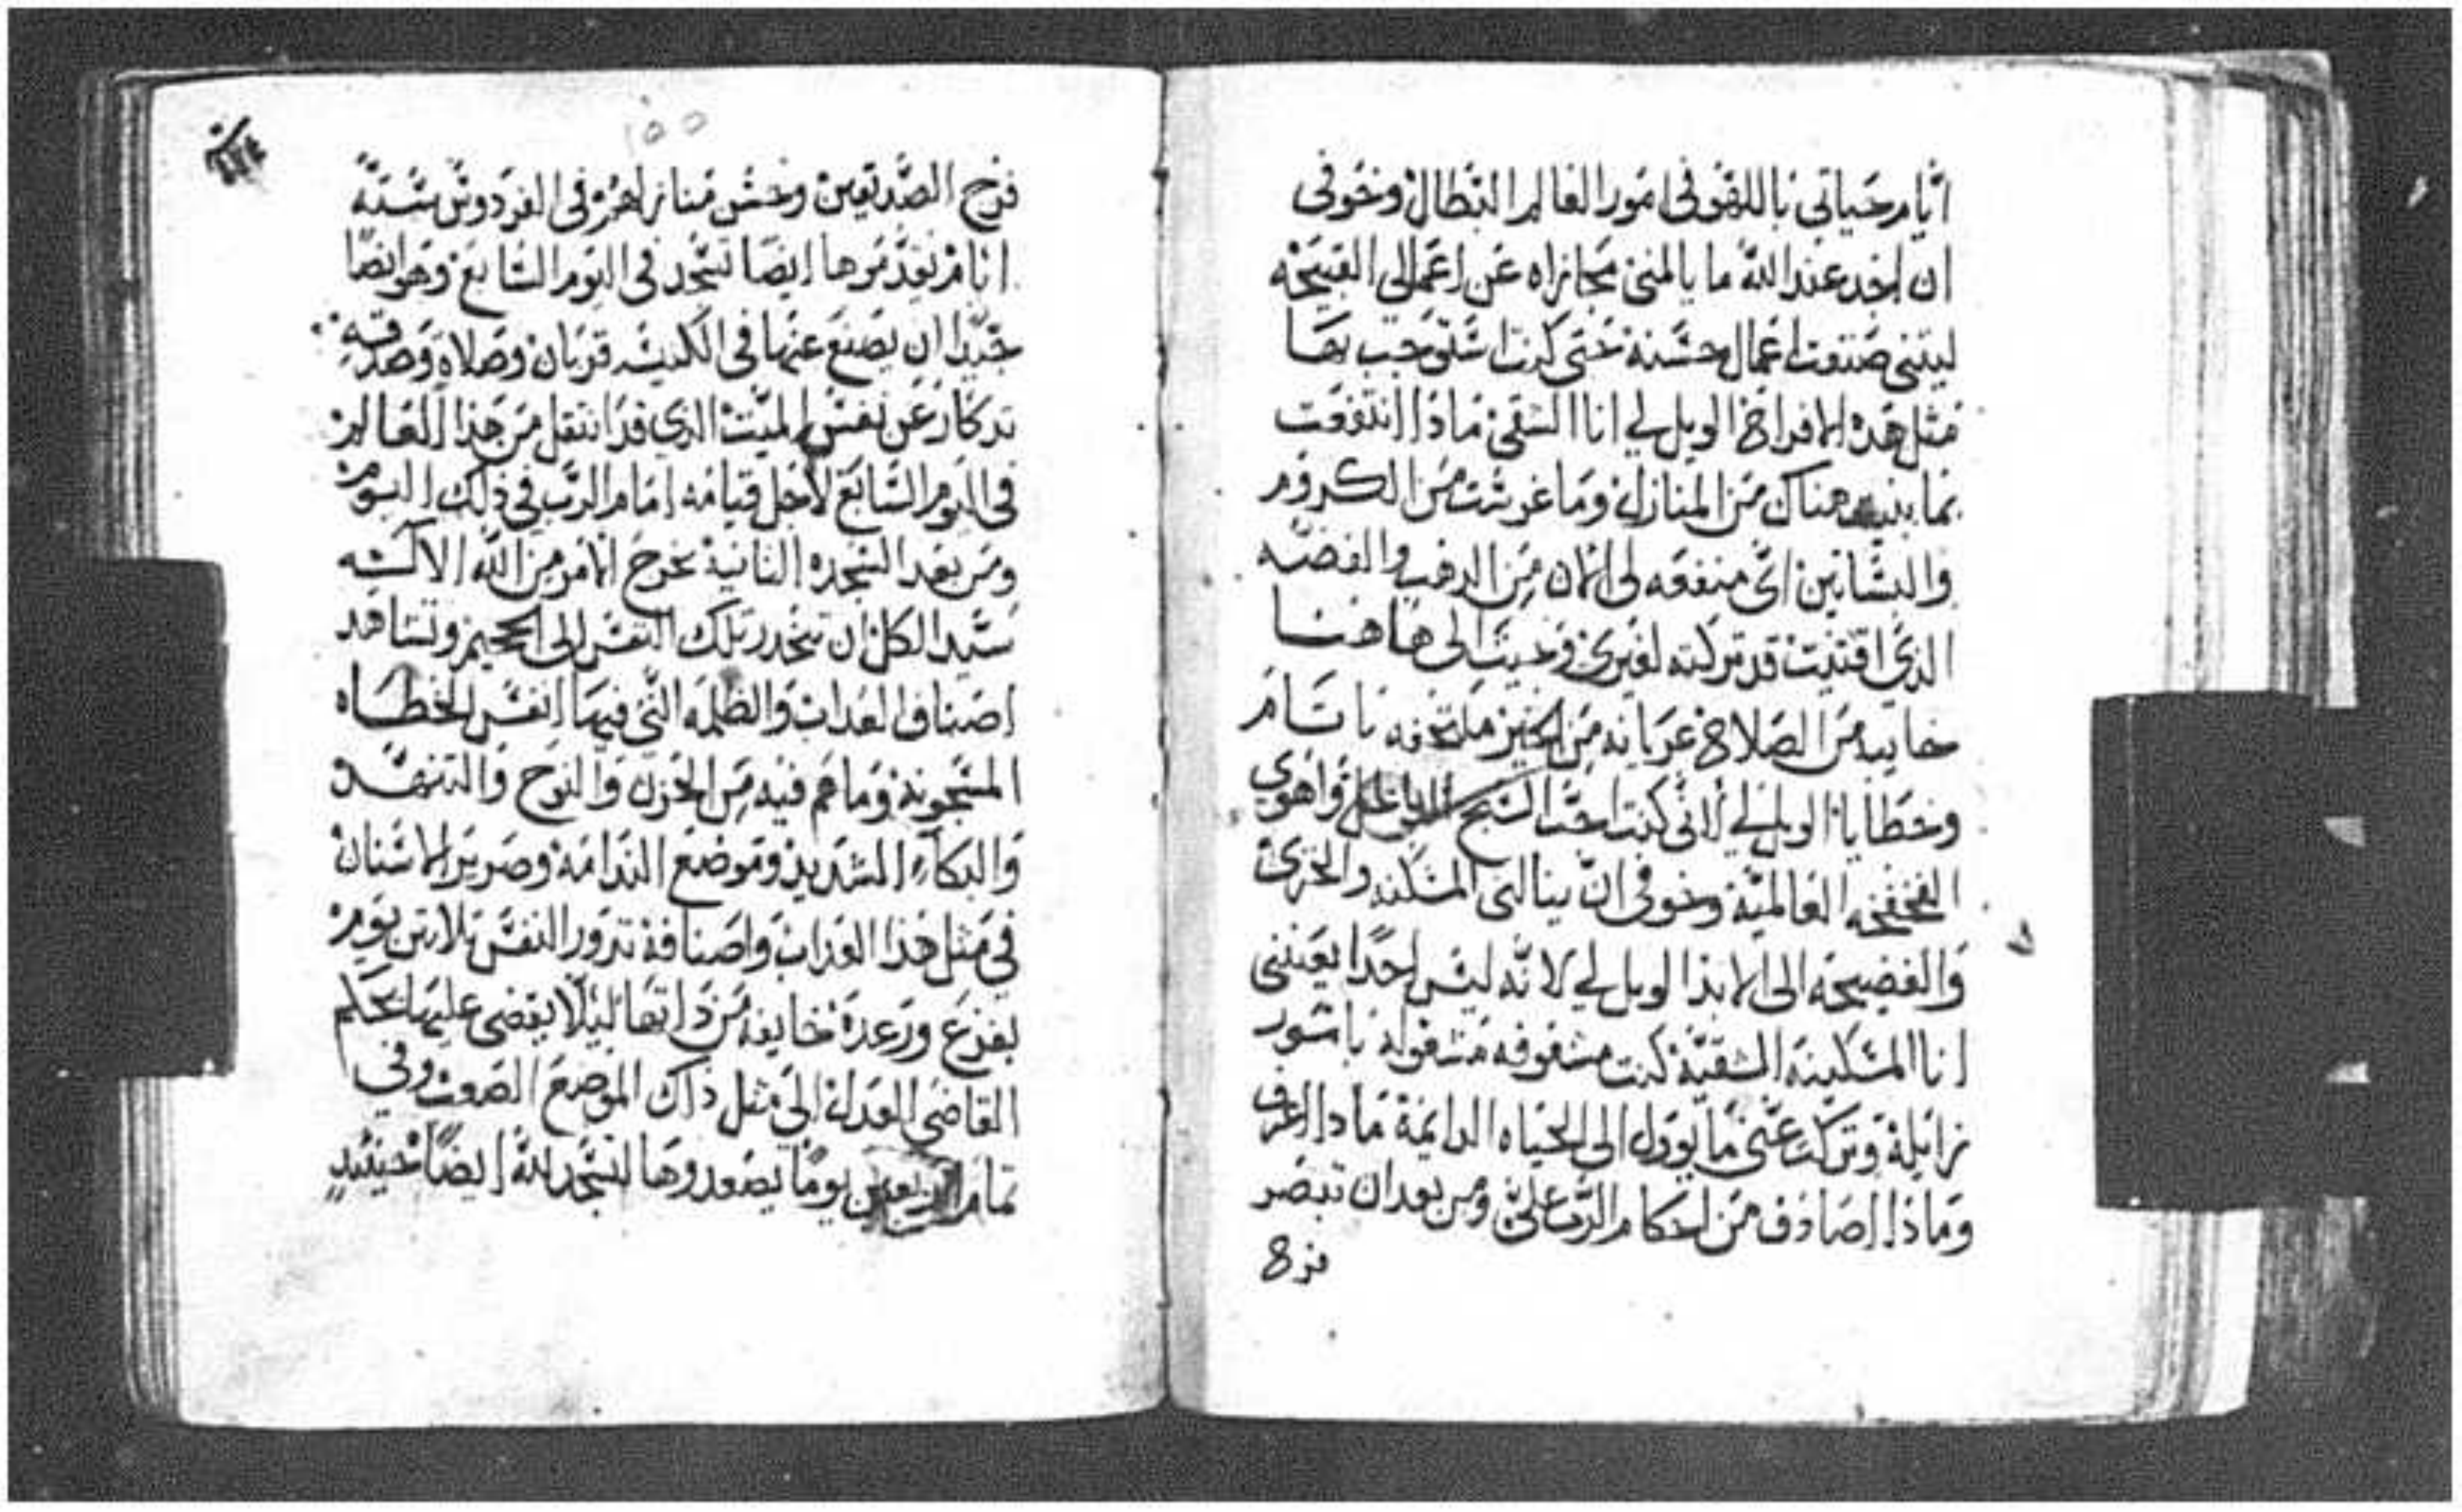 ايام حياتي باللهو في امور العالم البطال وخوفي
ان اجد عند الله ما يالمني مجازاه عن اعمالي القبيحه
ليتني صنعت اعمال حسنه حتى كنت استوجب بها
مثل هذه الافراح الويل لي انا الشقي ماذا انتفعت
بما بنيت هناك من المنازل وما غرست من الكروم
والبساتين اي منفعه لي الان من الدهب والفضه
الذي اقتنيت قد تركته لغيري وجيت الى هاهنا
خايبه من الصلاح عريانه من الخير ملتحفه باتام
وخطايا الويل لي لاني كنت احب السبح الباطل واهوي
الفخفخه العالميه وخوفي ان ينالني المسكنه والخزي
والفضيحه الى الابد الويل لي لانه ليس احدًا يعينني
انا المسكينه الشقيه كنت مشغوفه مشغوله بامور
زايله وتركت عني ما يوول الى الحياه الدايمه ماذا اعرف
وماذا اصادف من احكام الرب علي ومن بعد ان تبصر
فرح
١٥٥
فرح الصديقين وحسن منازلهم في الفردوس ستة
ايام يقدموها ايضا لتسجد في اليوم السابع وهو ايضًا
جيدا ان يصنع عنها في الكنيسه قربان وصلاة وصدقه
تدكار عن نفس الميت الدي قد انتقل من هذا العالم
في اليوم السابع لاجل قيامه امام الرب في ذلك اليوم
ومن بعد السجده التانيه يخرج الامر من الله الاله
سيد الكل ان تنحدر تلك النفس الى الجحيم وتشاهد
اصناف العداب والظلمه التي فيها انفس الخطاه
المسجونه وما هم فيه من الحزن والنوح والتنهد
والبكاء الشديد وموضع الندامه وصرير الاسنان
في مثل هذا العداب واصنافه تدور النفس تلاتين يوم
بفزع ورعدة خايفه من ذاتها ليلا يقضى عليها بحكم
القاضي العدل الى مثل ذاك الموضع الصعب وفي
تمام الاربعين يومًا يصعدوها لتسجد لله ايضًا حينيدٍ